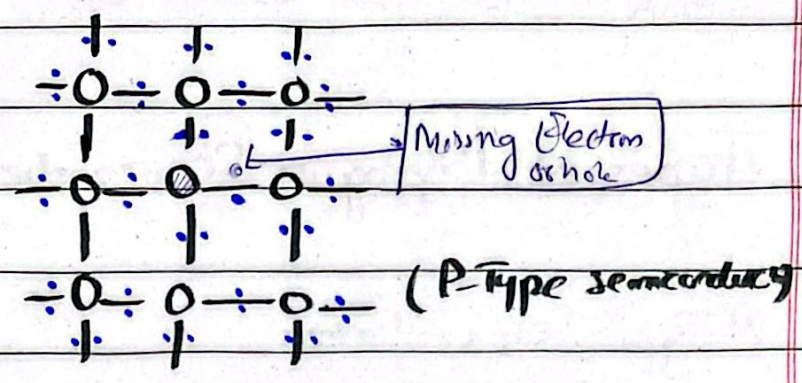 Missing Electron
or hole
(P-Type semiconductor)